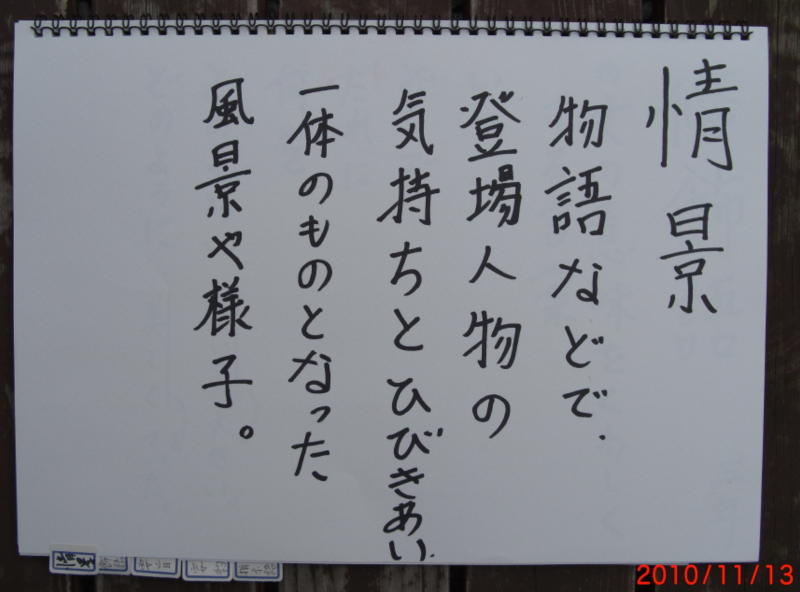 情景
物語などで、
登場人物の
気持ちとひびきあい、
一体のものとなった
風景や様子。
2010/11/13